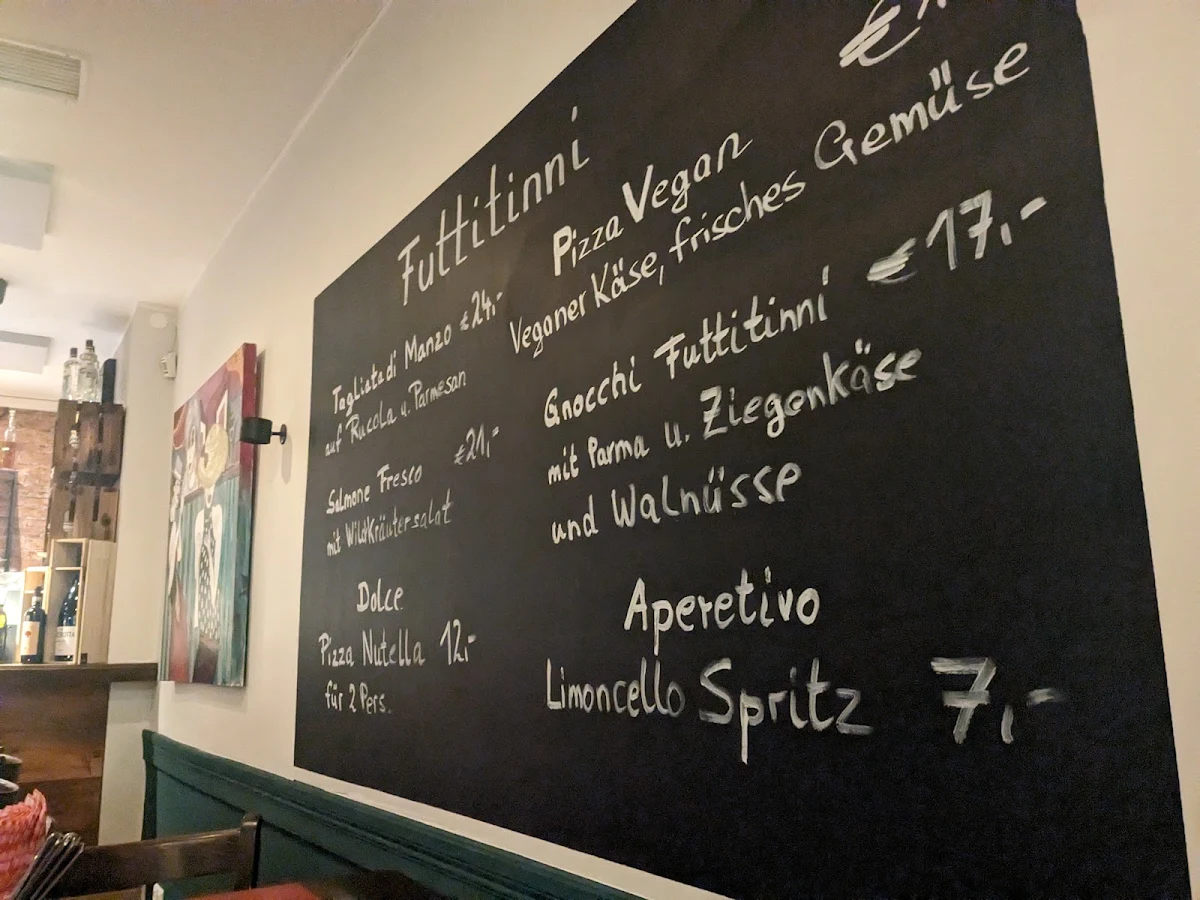 Futtitinni
Tagliata di Manzo €24,-
auf Rucola u. Parmesan
Salmone Fresco €21,-
mit Wildkräutersalat
Dolce
Pizza Nutella 12,-
für 2 Pers.
€
Pizza Vegan
Veganer Käse, frisches Gemüse
Gnocchi Futtitinni €17,-
mit Parma u. Ziegenkäse
und Walnüsse
Aperetivo
Limoncello Spritz 7,-